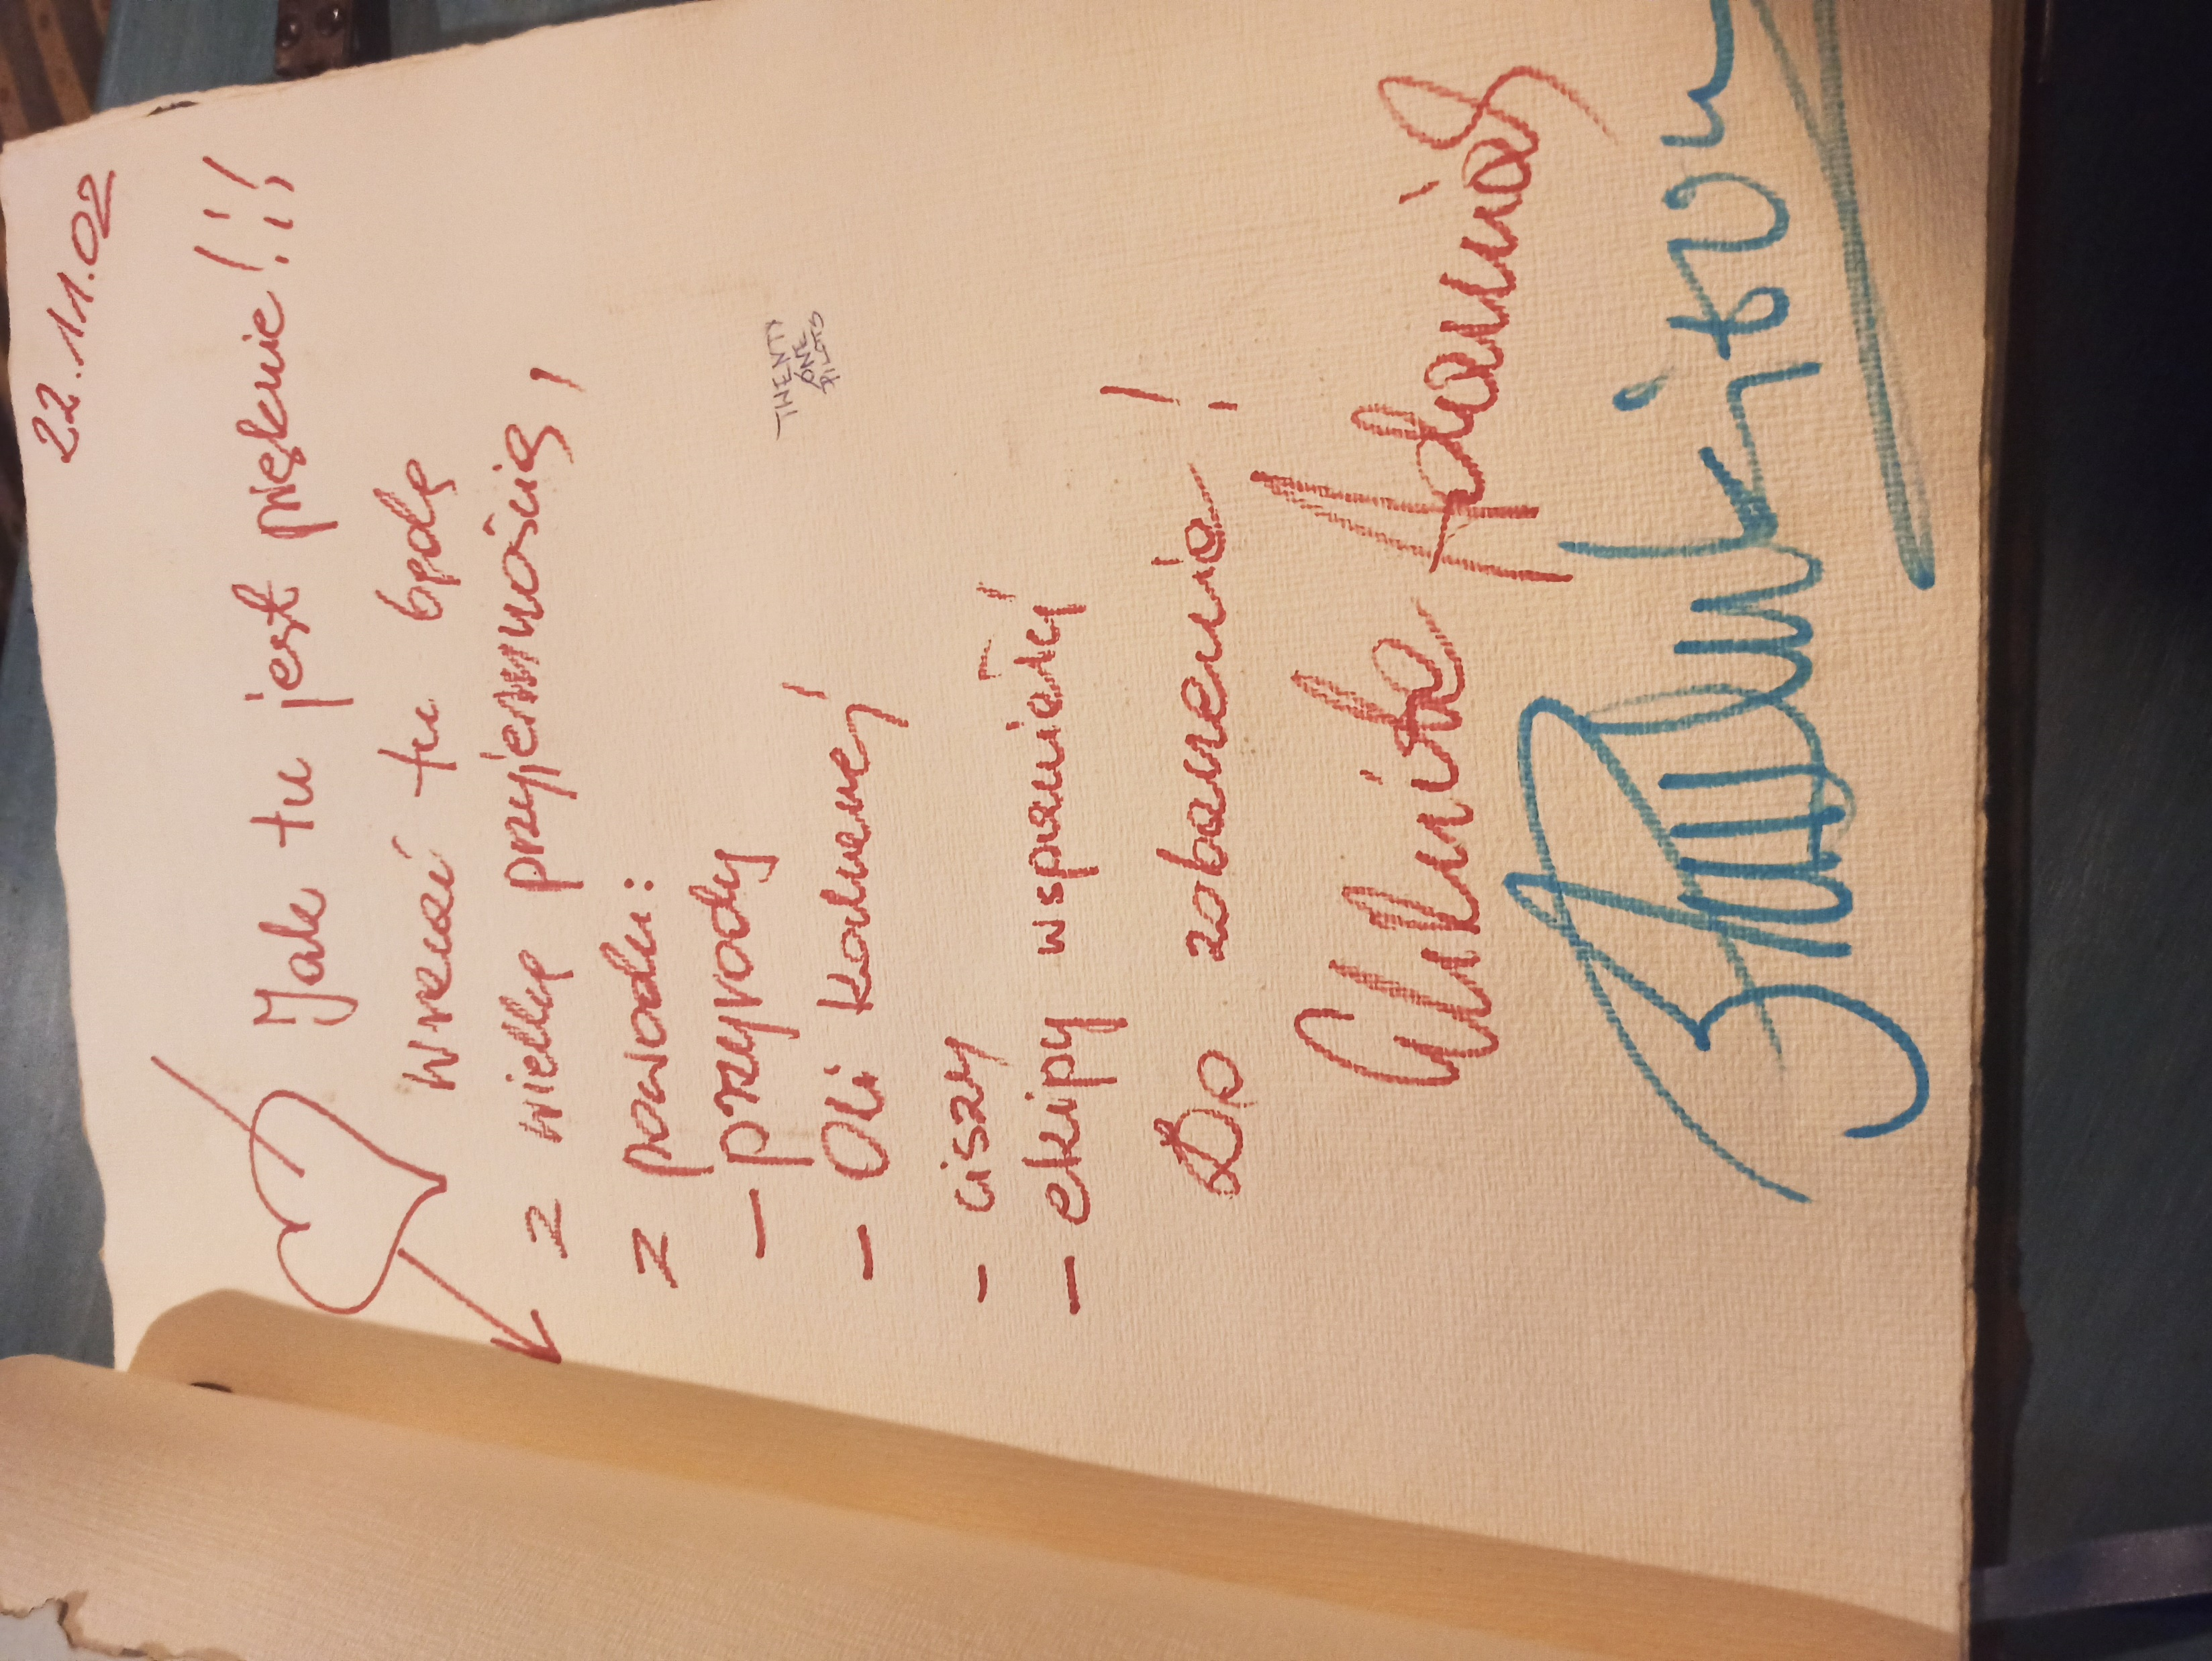 22.11.02
Jak tu jest pięknie!!!
wracać tu będę
z wielką przyjemnością,
z powodu:
- przyrody
- Oli kochanej
- ciszy
- ekipy wspaniałej
Do zobaczenia!
Adamiak
TWENTY
ONE
PILOTS